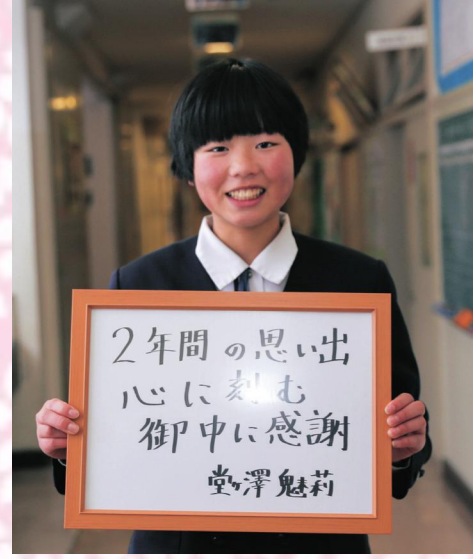 2年間の思い出
心に刻む
御中に感謝
堂ヶ澤魅莉